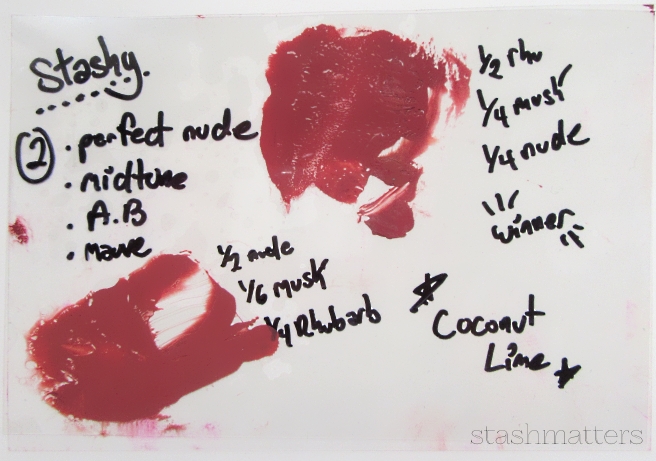 Stashy.
② • perfect nude
• midtone
• A.B
• mauve
1/2 rhu
1/4 musk
1/4 nude
winner
1/2 nude
1/6 musk
1/4 Rhubarb
Coconut
Lime
stashmatters